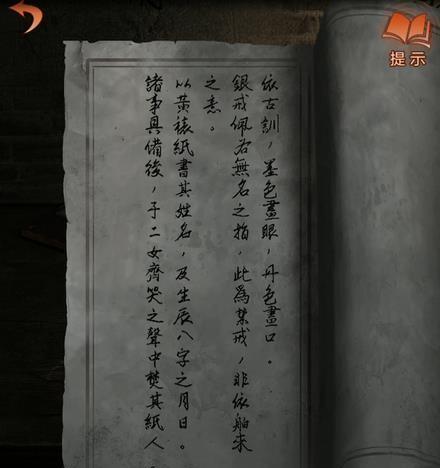 提示
依古訓，墨色畫眼，丹色畫口。
銀戒佩右無名之指，此為禁戒，非依舶來
之意。
以黃裱紙書其姓名，及生辰八字之月日。
諸事具備後，于二女齊哭之聲中焚其紙人